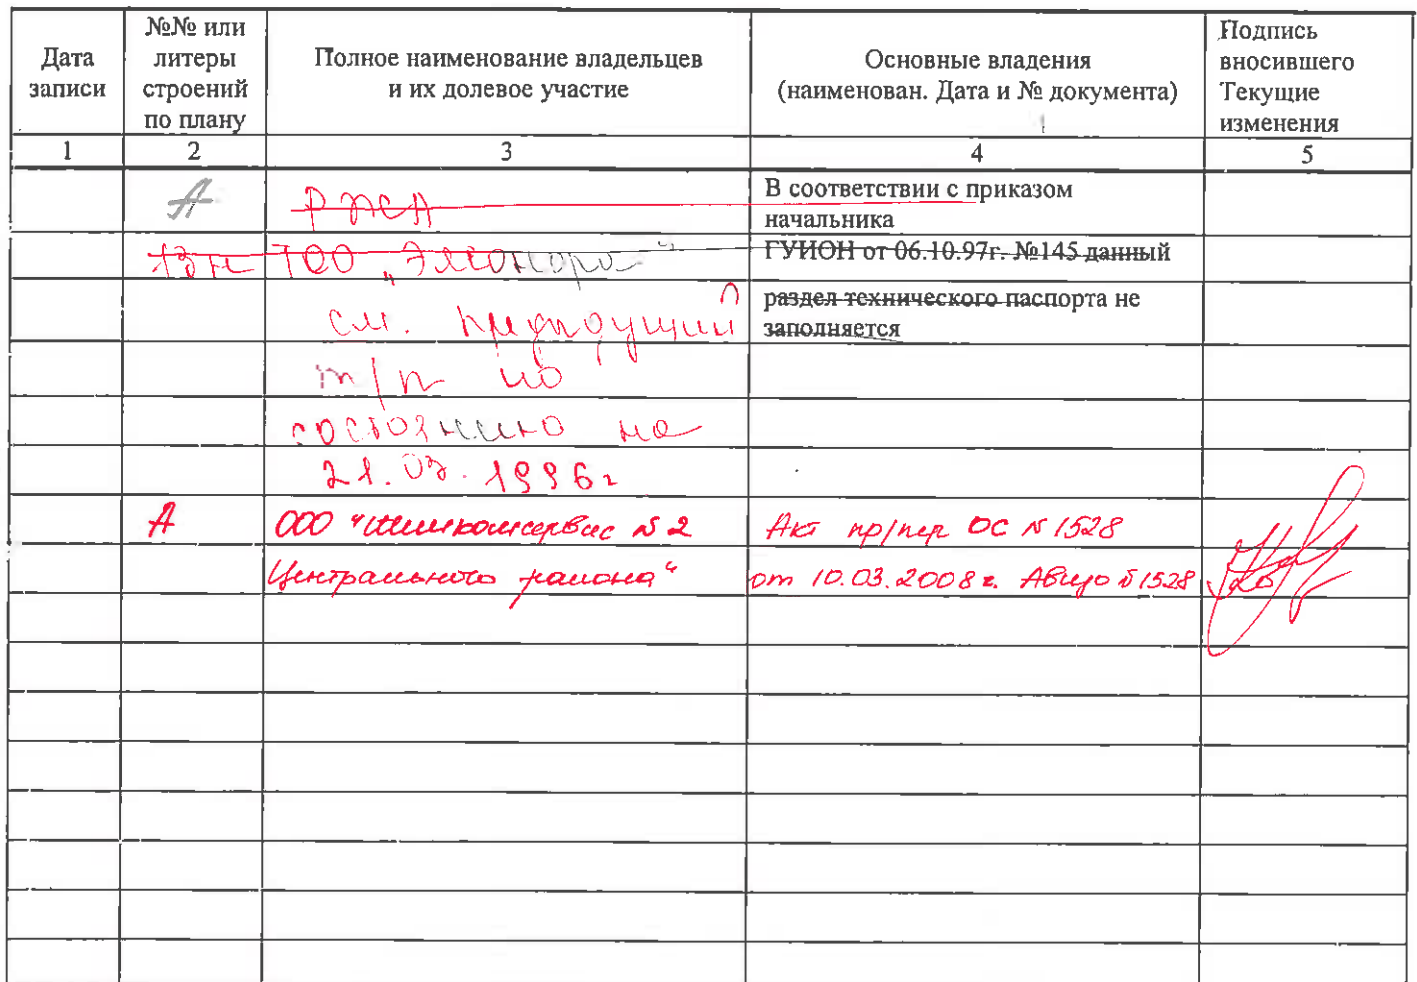 Дата записи
№№ или литеры строений по плану
Полное наименование владельцев и их долевое участие
Основные владения (наименован. Дата и № документа)
Подпись вносившего Текущие изменения
1 2 3 4 5
А РЖСА В соответствии с приказом
начальника
13н ТОО „Элеонора“ ГУИОН от 06.10.97г. №145 данный
раздел технического паспорта не
см. предыдущий заполняется
т/п по
состоянию на
21.03.1996г
А ООО "Жилкомсервис №2 Акт пр/пер ОС №1528
Центрального района" от 10.03.2008г. Авизо №1528